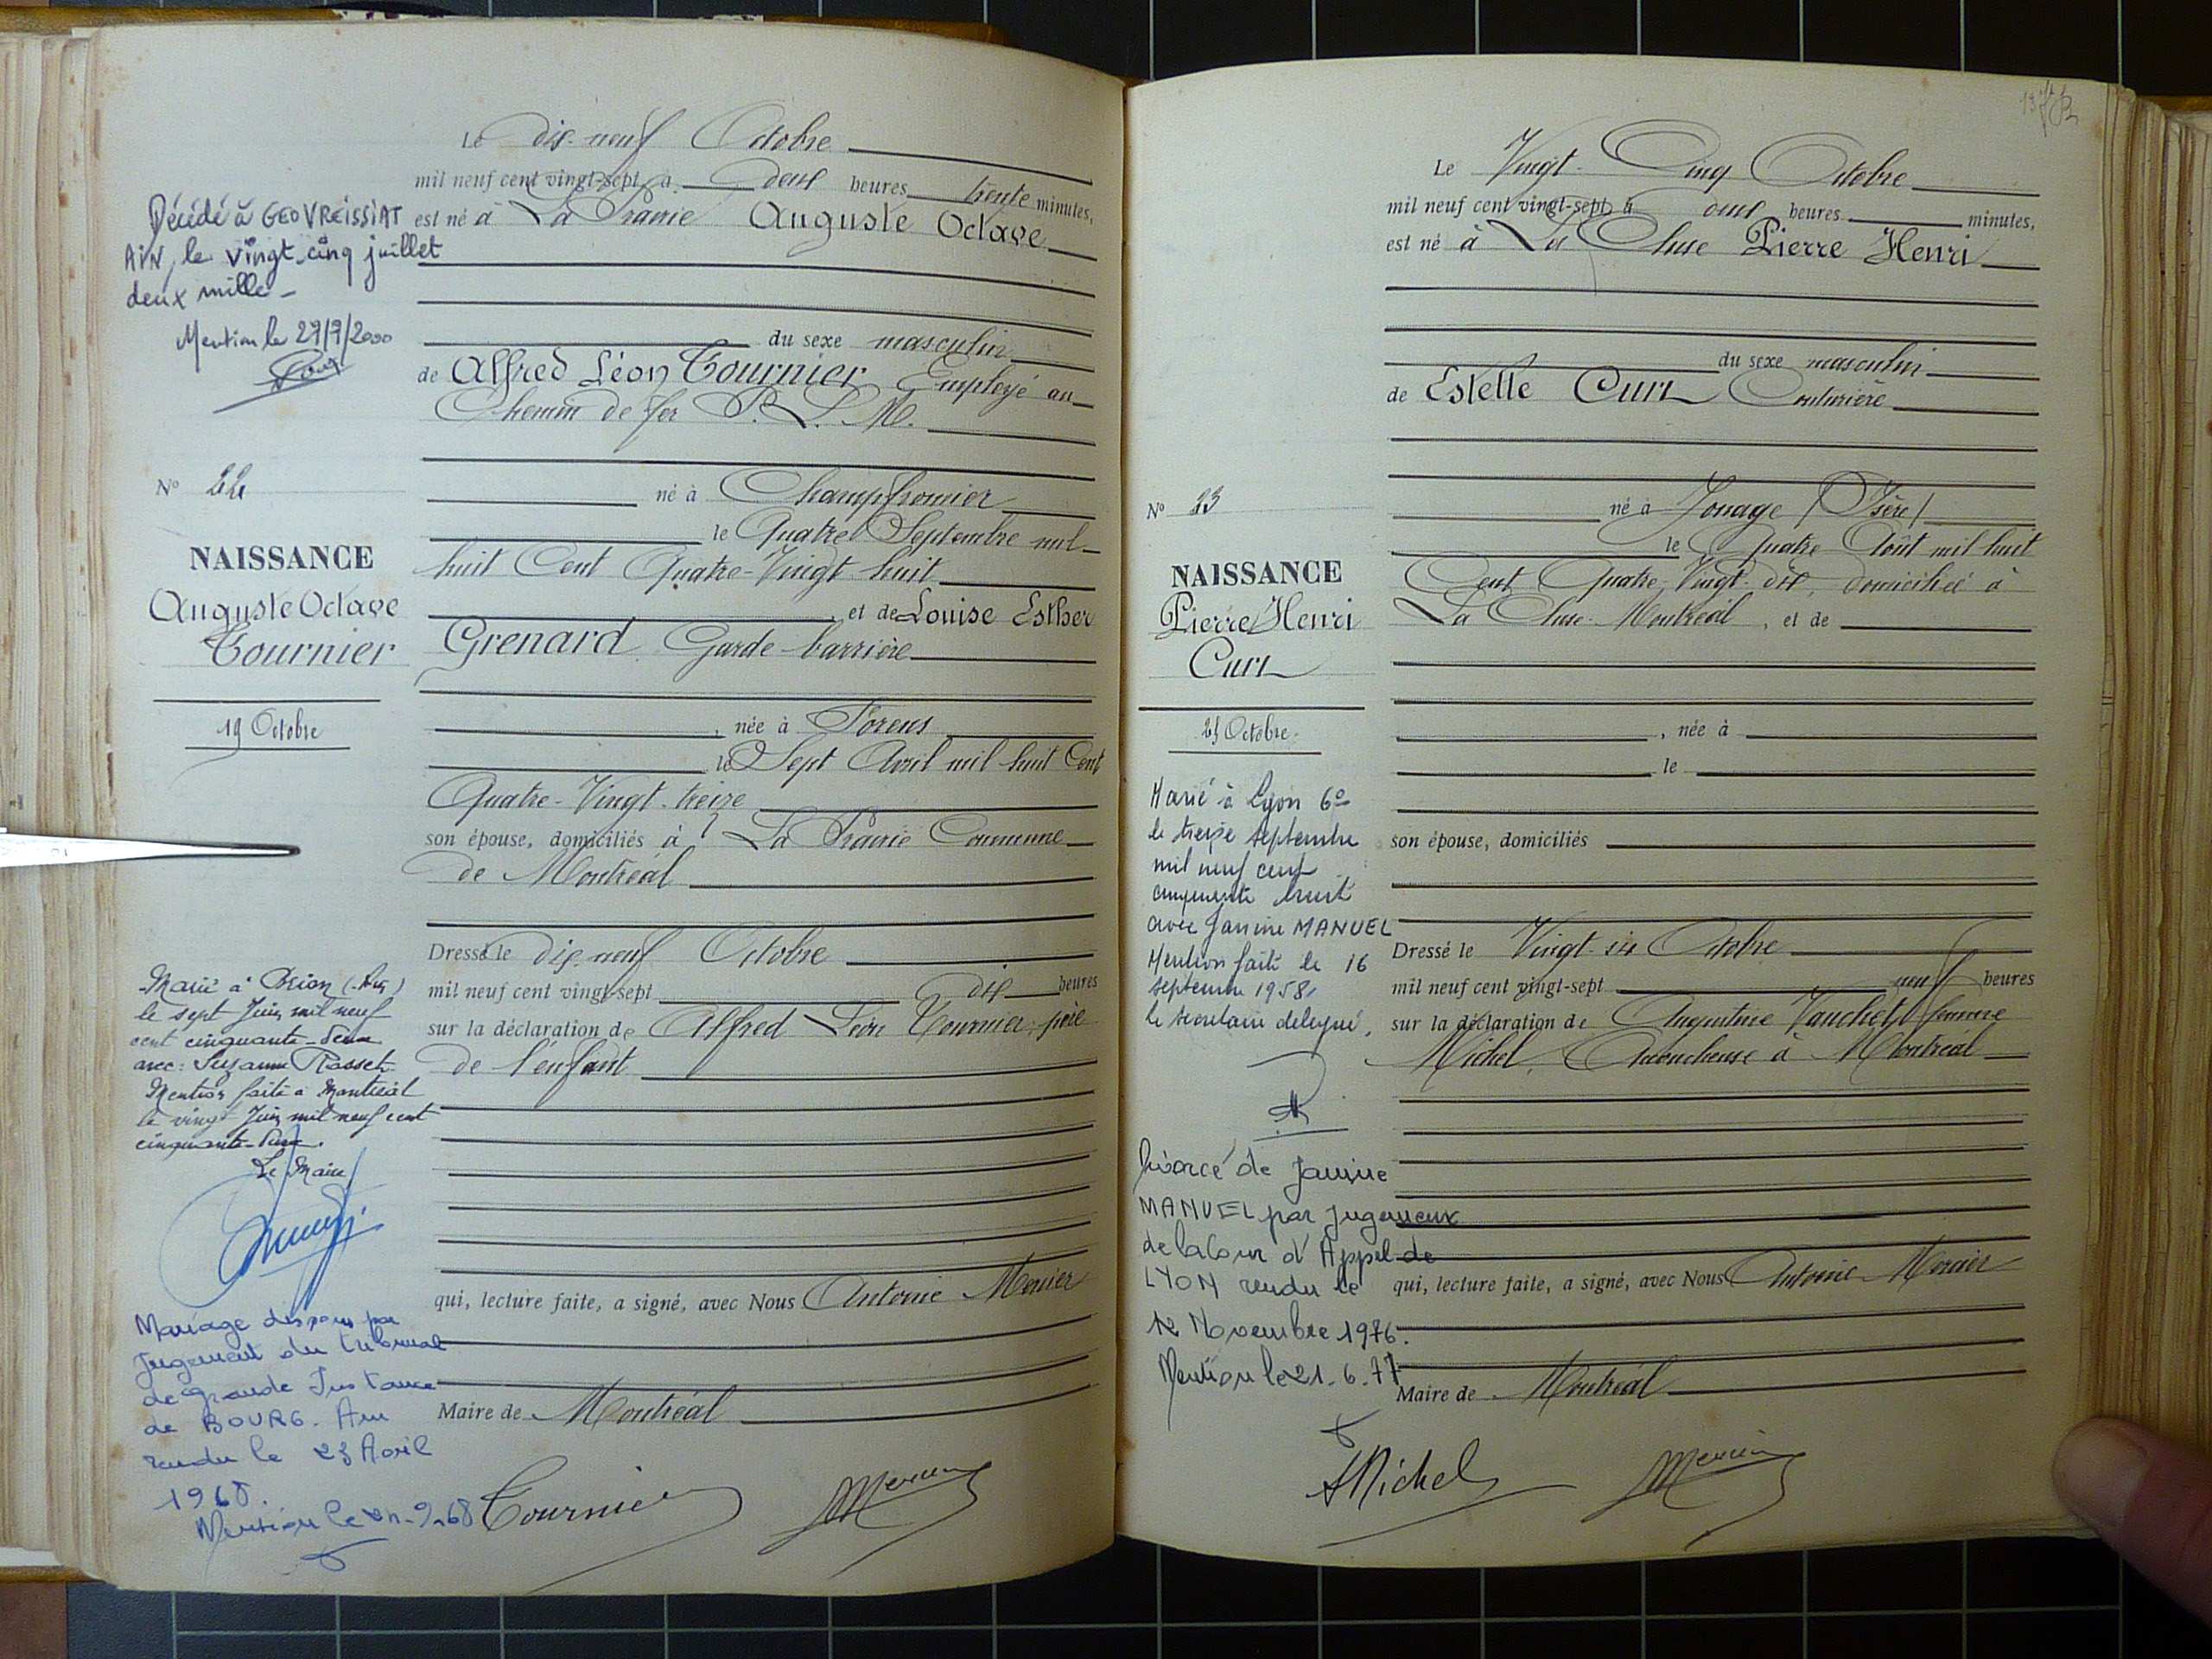 Le dix-neuf Octobre
mil neuf cent vingt-sept à deux heures trente minutes,
est né à La Prairie Auguste Octave
du sexe masculin
de Alfred Léon Tournier Employé au
Chemin de fer P. L. M.
né à Champfromier
le Quatre Septembre mil
huit Cent Quatre-Vingt huit
et de Louise Esther
Grenard Garde-barrière
, née à Sorens
le Sept Avril mil huit Cent
Quatre-Vingt-treize
son épouse, domiciliés à La Prairie Commune
de Montréal
Dressé le dix-neuf Octobre
mil neuf cent vingt-sept dix heures
sur la déclaration de Alfred Léon Tournier, père
de l'enfant
qui, lecture faite, a signé, avec Nous Antoine Mercier
Maire de Montréal
Tournier Mercier
Décédé à GEOVREISSIAT
AIN, le vingt-cinq juillet
deux mille-
Mention le 27/7/2000
N° 22
NAISSANCE
Auguste Octave
Tournier
19 Octobre
Marié à Brion (Ain)
le sept Juin mil neuf
cent cinquante-deux
avec: Suzanne Rosset
Mention faite à Montréal
le vingt Juin mil neuf cent
cinquante-deux.
Le Maire
Mariage dissous par
Jugement du tribunal
de grande Instance
de BOURG. Ain
rendu le 23 Avril
1968.
Mention le 9-68
Le Vingt-Cinq Octobre
mil neuf cent vingt-sept à onze heures minutes,
est né à La Cluse Pierre Henri
du sexe masculin
de Estelle Curt Couturière
né à Jonage (Isère)
le Quatre Août mil huit
Cent Quatre-Vingt-dix, domiciliée à
La Cluse-Montréal, et de
, née à
le
son épouse, domiciliés
Dressé le Vingt-six Octobre
mil neuf cent vingt-sept neuf heures
sur la déclaration de Augustine Vauchet femme
Michel, Accoucheuse à Montréal
qui, lecture faite, a signé, avec Nous Antoine Mercier
Maire de Montréal
AMichel Mercier
N° 23
NAISSANCE
Pierre Henri
Curt
25 Octobre.
Marié à Lyon 6e
le treize septembre
mil neuf cent
cinquante huit
avec Janine MANUEL
Mention faite le 16
septembre 1958.
le secrétaire délégué,
Divorcé de Janine
MANUEL par jugement
de la Cour d'Appel de
LYON rendu le
12 Novembre 1976.
Mention le 21-6-77